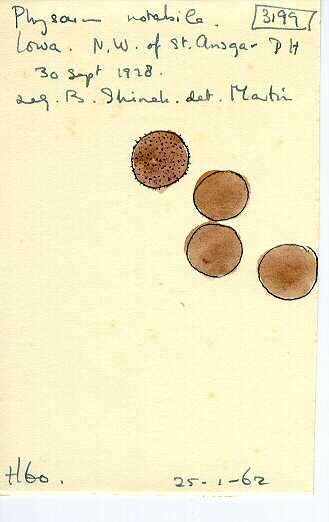 Physarum notabile. 3199
Iowa. N.W. of St. Ansgar D H
30 Sept 1928.
leg. B. Shimek. det. Martin
H60. 25-1-62